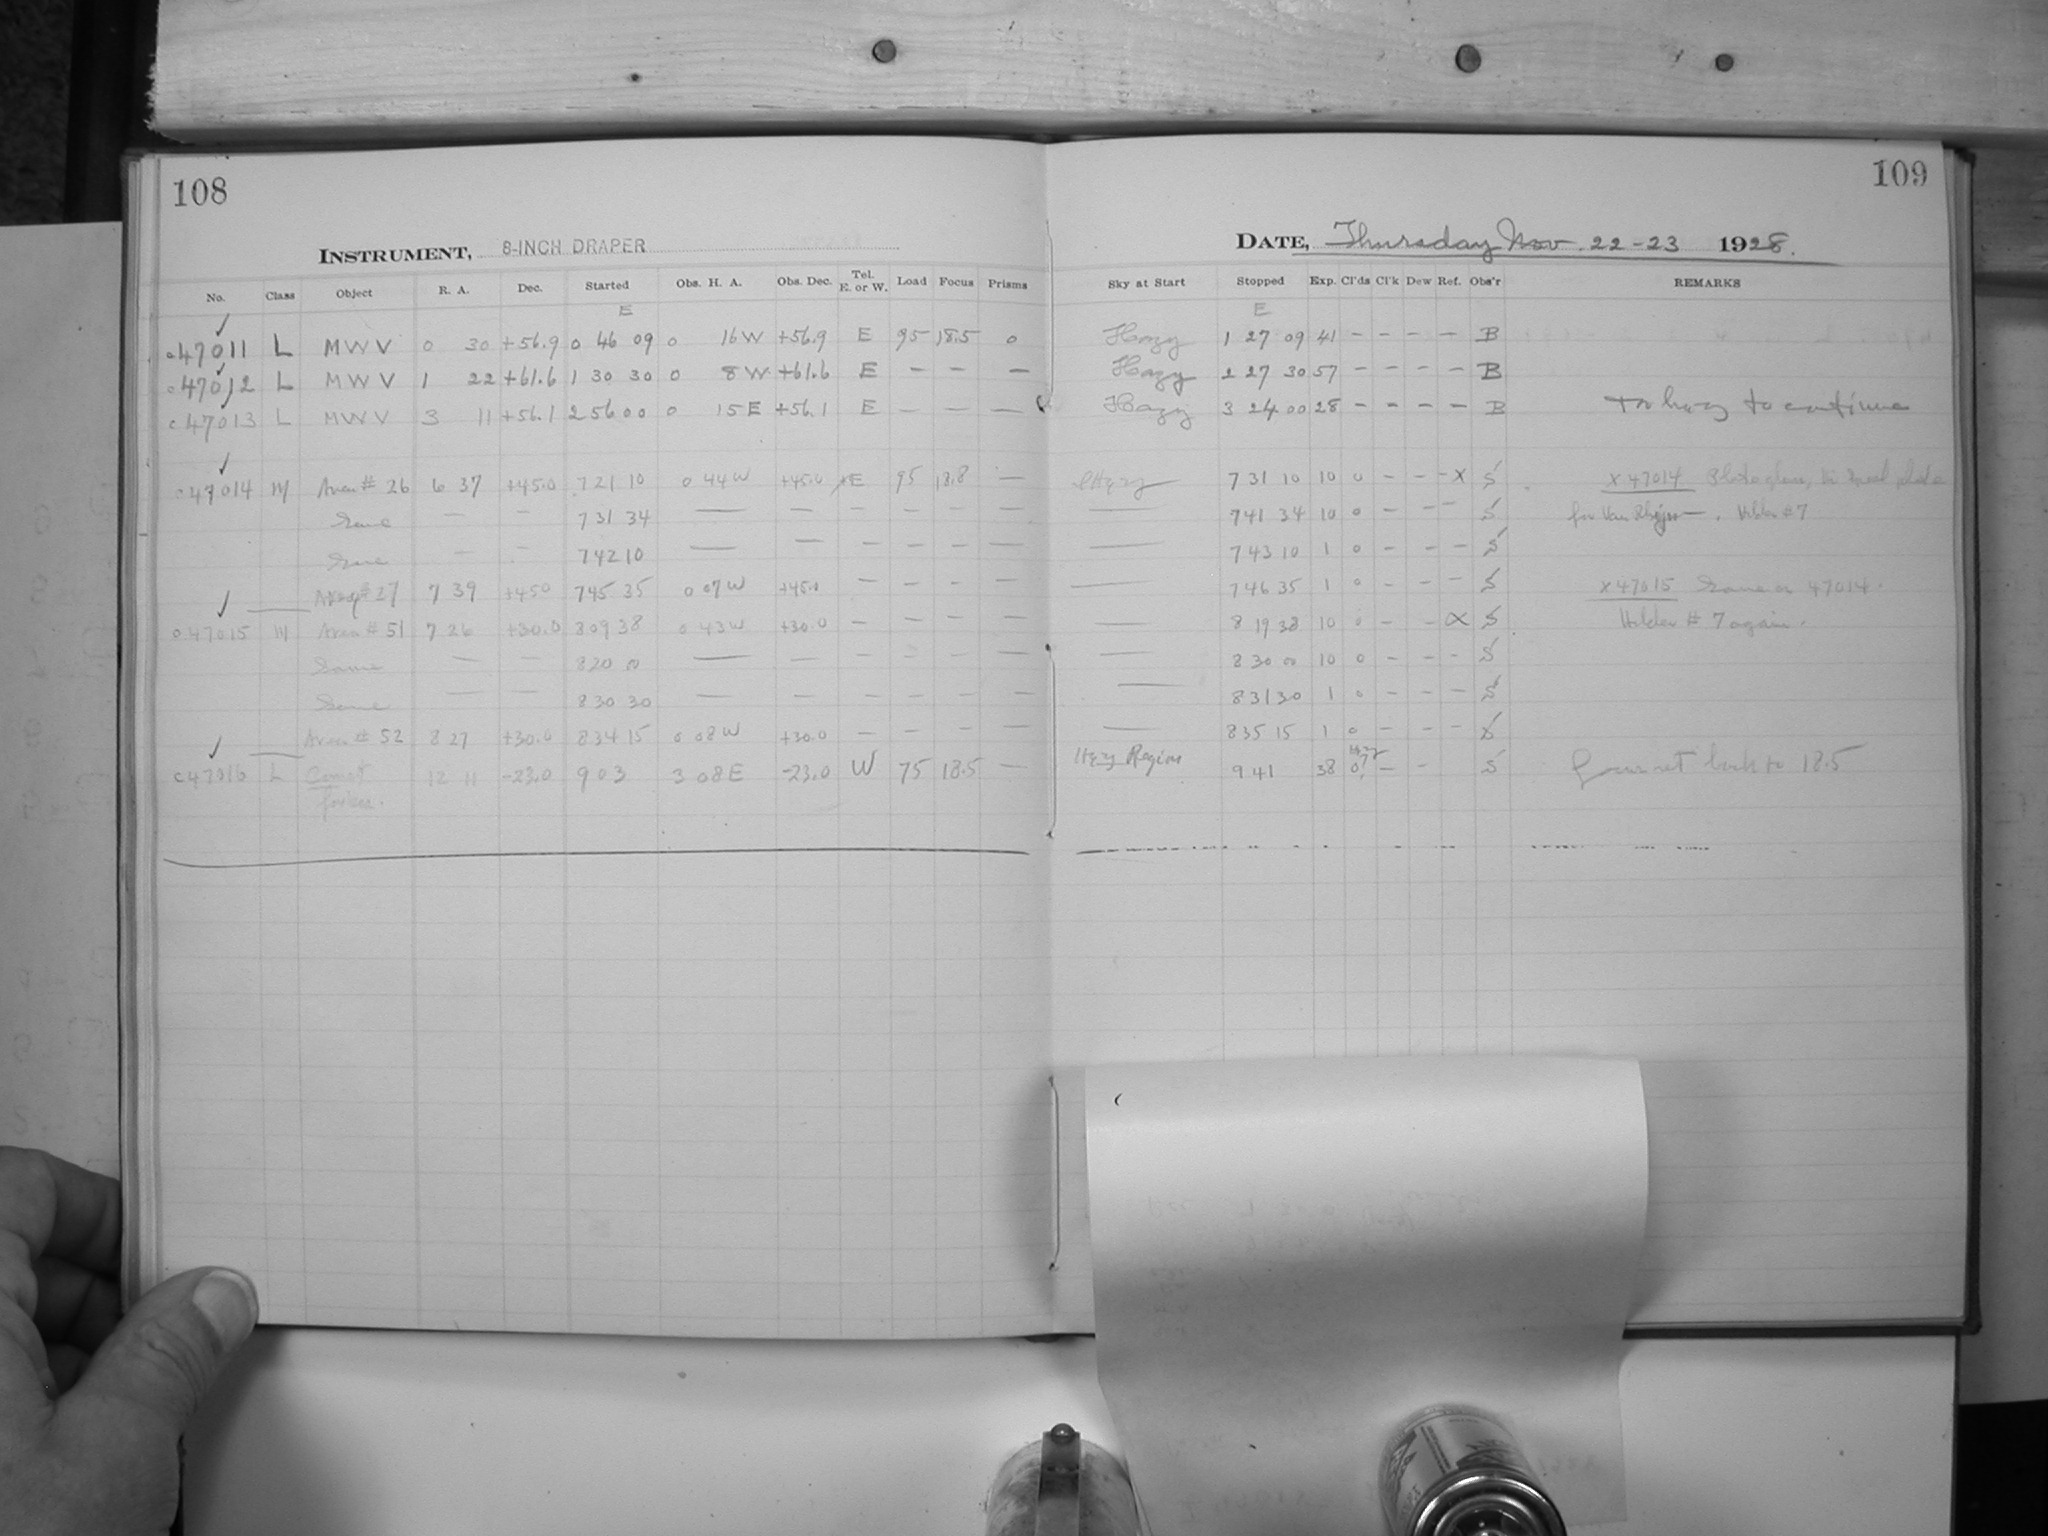 108
INSTRUMENT, 8-INCH DRAPER
No. Class Object R. A. Dec. Started Obs. H. A. Obs. Dec. Tel. E. or W. Load Focus Prisms
E
c47011 L MWV 0 30 +56.9 0 46 09 0 16 W +56.9 E 95 18.5 0
c47012 L MWV 1 22 +61.6 1 30 30 0 8 W +61.6 E — — —
c47013 L MWV 3 11 +56.1 2 56 00 0 15 E +56.1 E — — —
c47014 M Area # 26 6 37 +45.0 7 21 10 0 44 W +45.0 E 95 18.8 —
Same — — 7 31 34 — — — — — —
Same — — 7 42 10 — — — — — —
Area # 27 7 39 +45.0 7 45 35 0 07 W +45.0 — — — —
c47015 M Area # 51 7 26 +30.0 8 09 38 0 43 W +30.0 — — — —
Same — — 8 20 00 — — — — — —
Same — — 8 30 30 — — — — — —
Area # 52 8 27 +30.0 8 34 15 0 08 W +30.0 — — — —
c47016 L Comet 12 11 -23.0 9 03 3 08 E -23.0 W 75 18.5 —
Forbes.
109
DATE, Thursday Nov 22-23 1928.
Sky at Start Stopped Exp. Cl'ds Cl'k Dew Ref. Obs'r REMARKS
E
Hazy 1 27 09 41 — — — — B
Hazy 2 27 30 57 — — — — B
Hazy 3 24 00 28 — — — — B Too hazy to continue
Hazy 7 31 10 10 0 — — -X S X 47014 plate
— 7 41 34 10 0 — — — S for Van Rhijn —. Holder #7
— 7 43 10 1 0 — — — S
— 7 46 35 1 0 — — — S X 47015 Same as 47014.
— 8 19 38 10 0 — — X S Holder # 7 again.
— 8 30 00 10 0 — — — S
— 8 31 30 1 0 — — — S
— 8 35 15 1 0 — — — S
Hazy Region 9 41 38 0? — — S Focus set back to 18.5